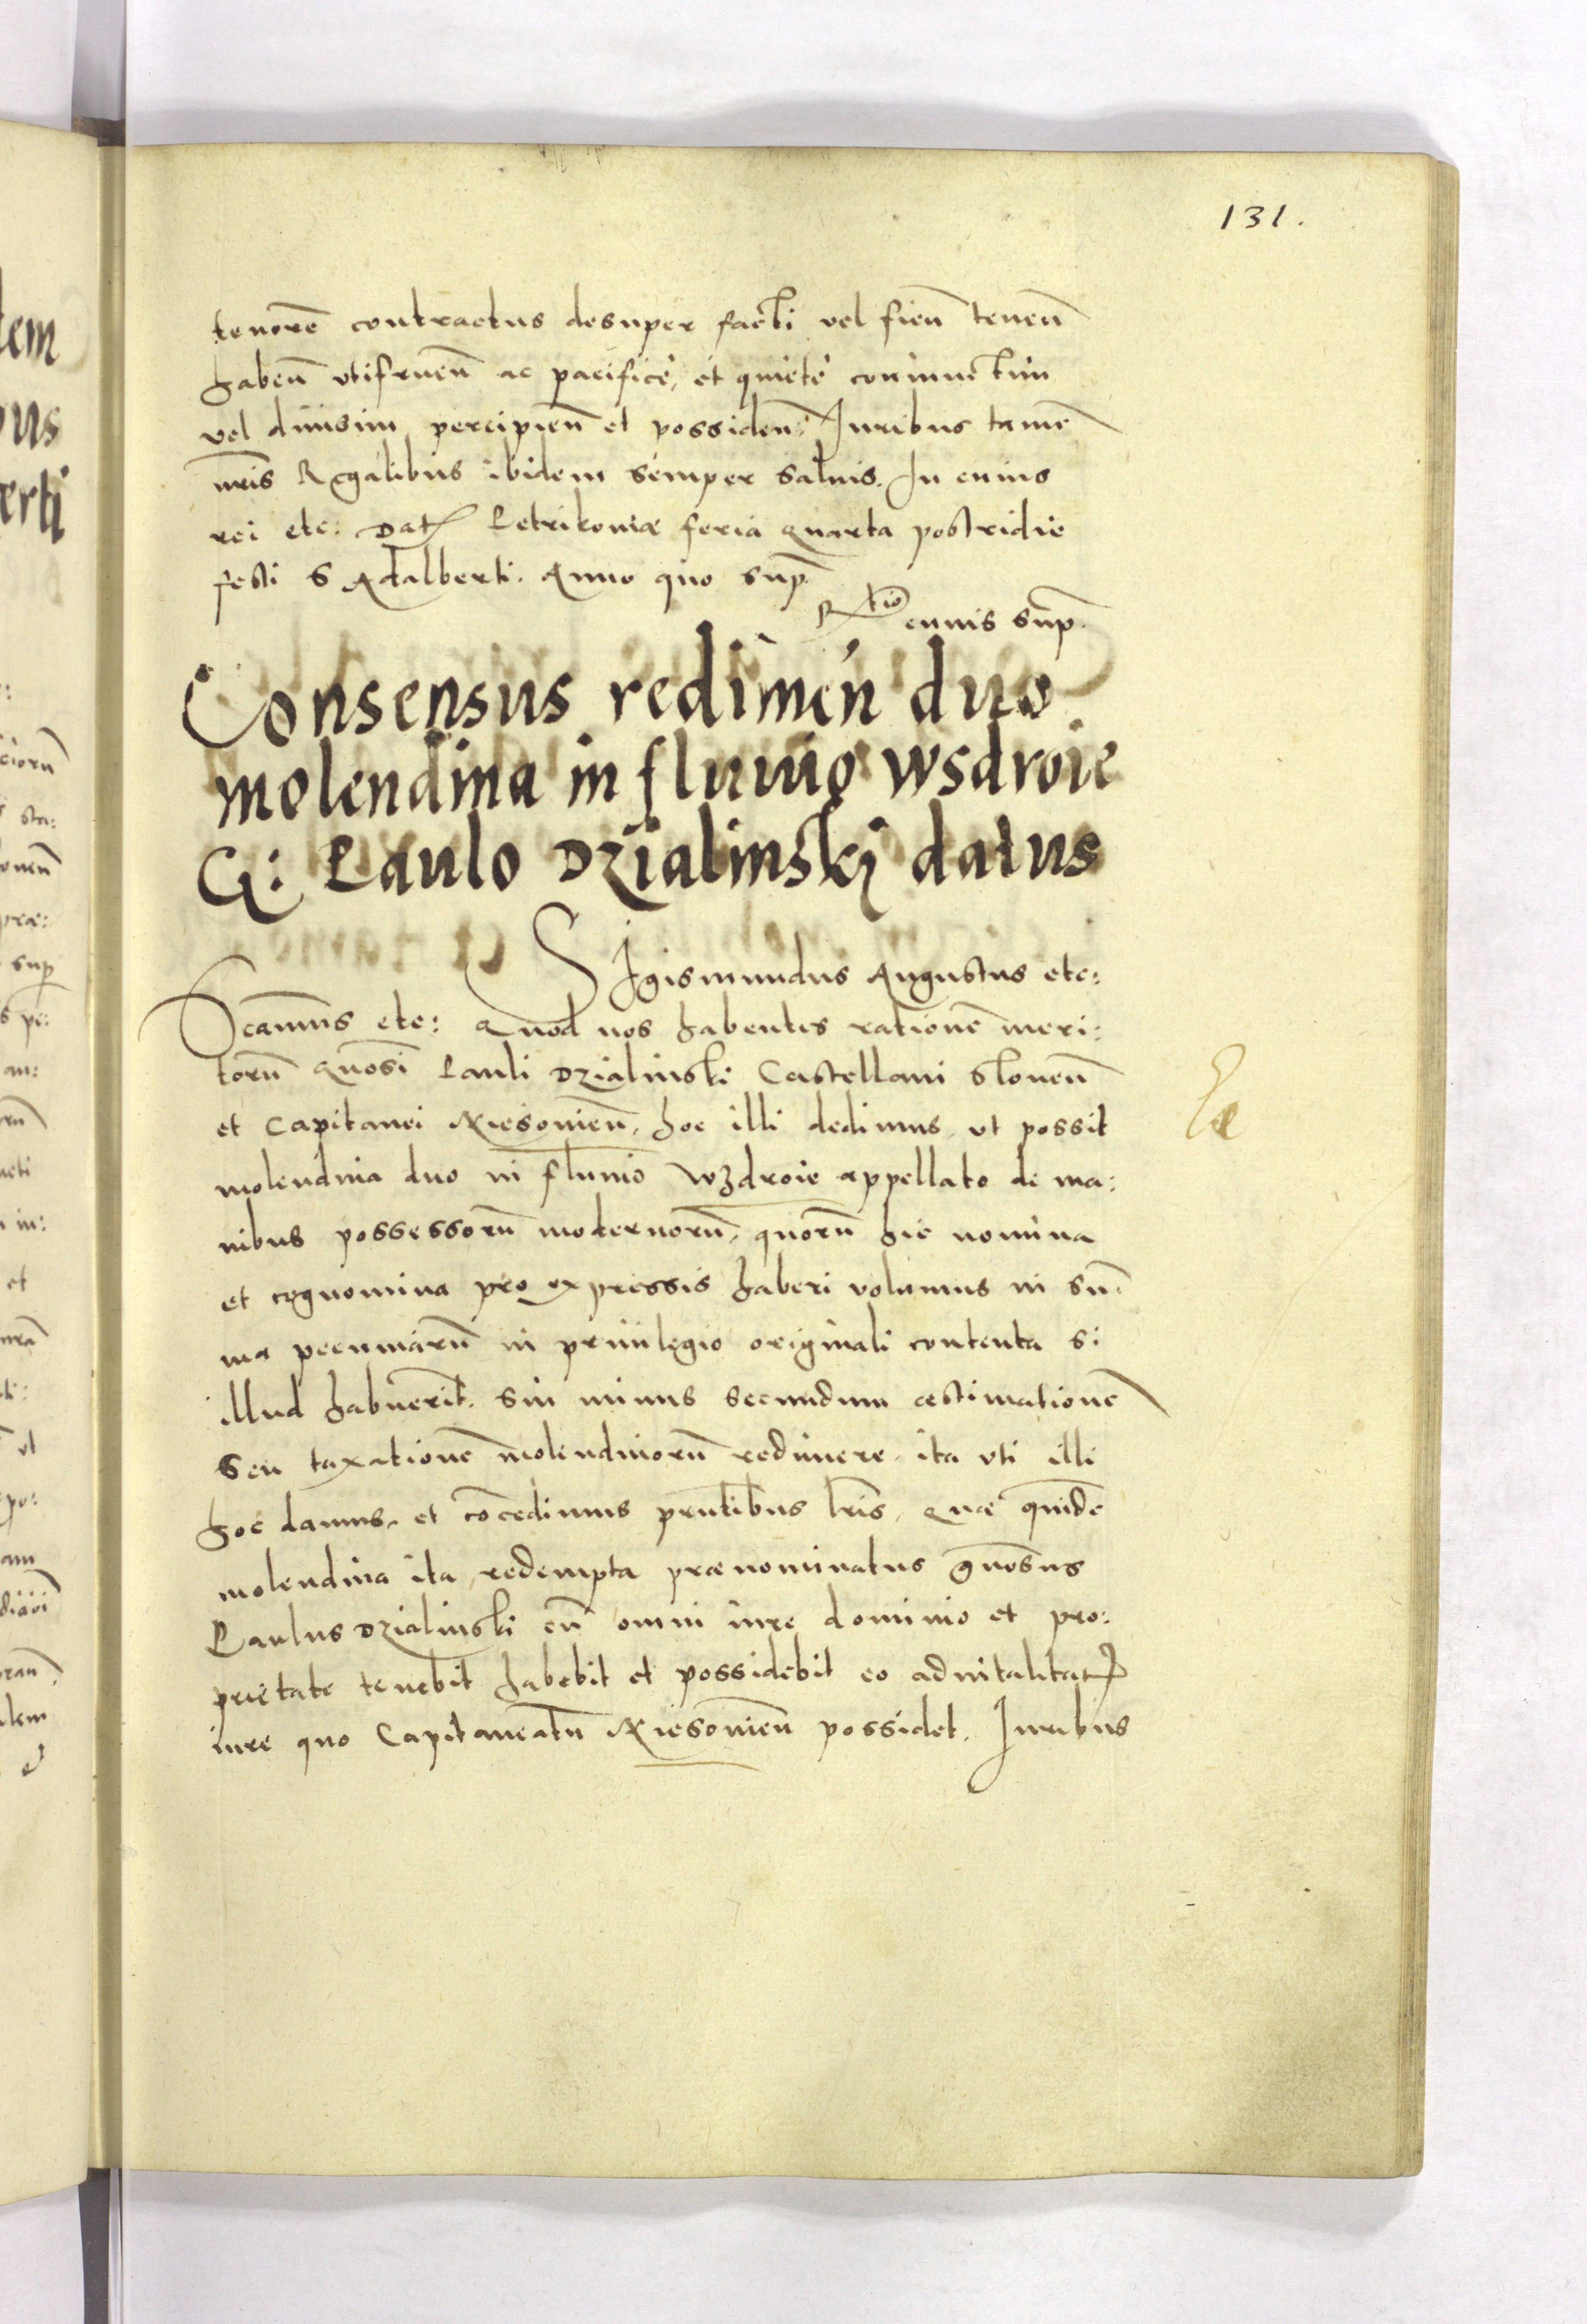 131.
tenorē contractus desuper facti vel fieñ teneñ
habeñ vtifrueñ ac pacificè, et quietè coniunctim
vel diuisim percipieñ et possideñ: Iuribus tamē
nr̄is Regalibus ibidem semper saluis. In cuius
rei etc: Dat Petrikouiæ feria quarta postridie
festi S Adalberti. Anno quo sup̄
R̃tio cuius sup̄.
Consensus redimeñ duo
molendina in fluuio wsdroie
G: Paulo Dzialinskj datus
SIgismundus Augustus etc:
camus etc: Quod nos habentes rationē meri:
torū Gnosi Pauli Dzialinski Castellani Sloneñ
et Capitanei Niesouieñ, hoc illi dedimus, ut possit
molendina duo in fluuio Wzdroie appellato de ma:
nibus possessorū modernorū, quorū hic nomina
et cognomina pro expressis haberi volumus in sū:
ma pecuniarū in priuilegio originali contenta si
illud habuerit. Sin minus secundum æstimationē
seu taxationē molendinorū redimere, ita vti illi
hoc damus, et cōcedimus pr̄ntibus lr̄is, Quæ quidē
molendina ita redempta prænominatus Gnosus
Paulus Dzialinski cū omni iure dominio et pro:
prietate tenebit habebit et possidebit eo aduitalitat
iure quo Capitaneatū Niesouieñ possidet. Iuribus